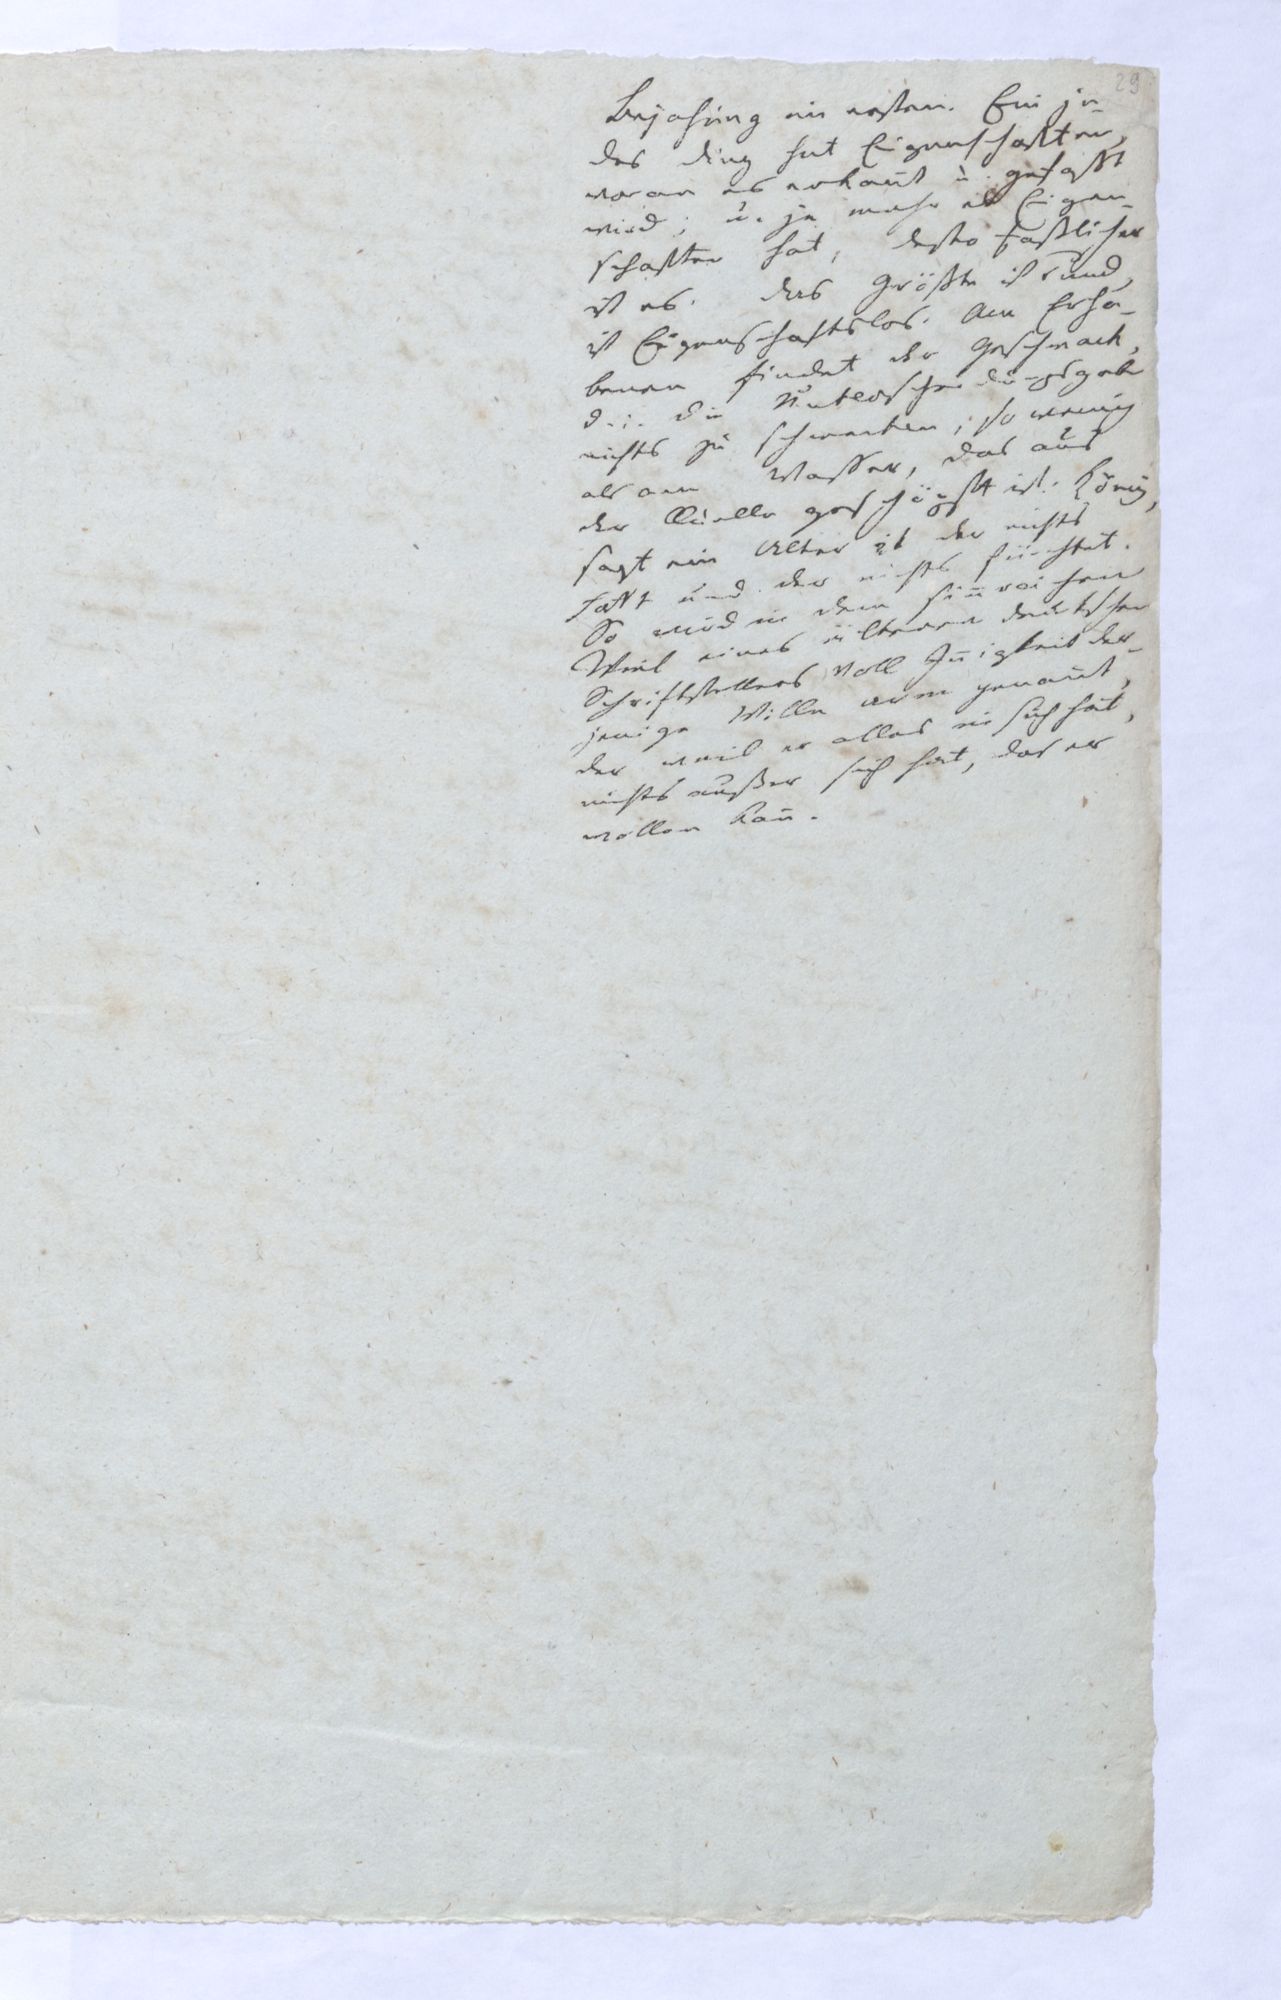 29
Bejahung im ersten. Ein je-
des Ding hat Eigenschaften,
woran es erkan̄t u. gefaßt
wird; u. je mehr es Eigen-
schaften hat, desto faßlicher
ist es. Das Größte ist rund,
ist Eigenschaftslos. Am Erha-
benen findet der Geschmack,
d. i. die Unterscheidungsgabe
nichts zu schmecken, so wenig
als am Wasser, das aus
der Quelle geschöpft ist. König,
sagt ein Alter ist der nichts
hofft und der nichts fürchtet.
So wird in dem sin̄reichen
Spiel eines älteren deutschen
Schriftstellers voll In̄igkeit der-
jenige Wille arm genan̄t,
der weil er alles in sich hat,
nichts außer sich hat, das er
wollen kan̄.